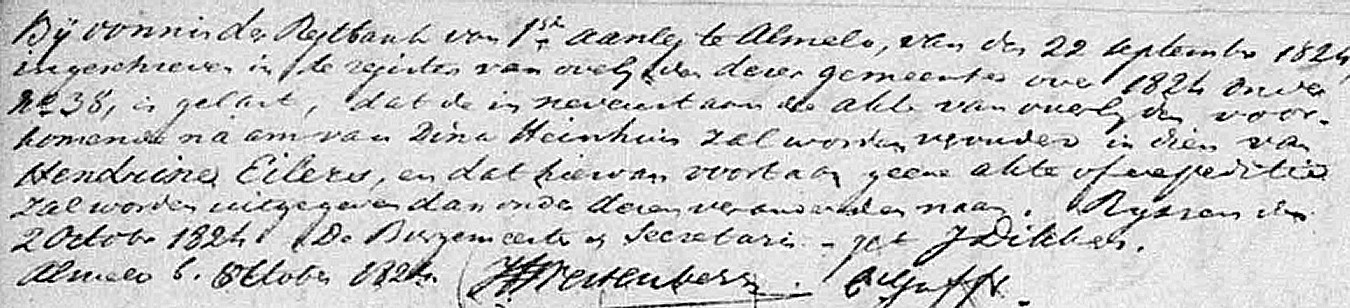 Bij vonnis der Regtbank van 1ste aanleg te Almelo, van den 22 September 1824,
ingeschreven in de registers van overlijden dezer gemeente over 1824 onder
No 38, is gelast, dat de in nevenstaande akte van overlijden voor-
komende naam van Dina Heinhuis zal worden veranderd in dien van
Hendrina Eilers, en dat hiervan voortaan geene akte of expeditie
zal worden uitgegeven dan onder dezen veranderden naam. Ryssen den
2 October 1824 De Burgemeester Secretaris - get
Almelo 6. October 1824